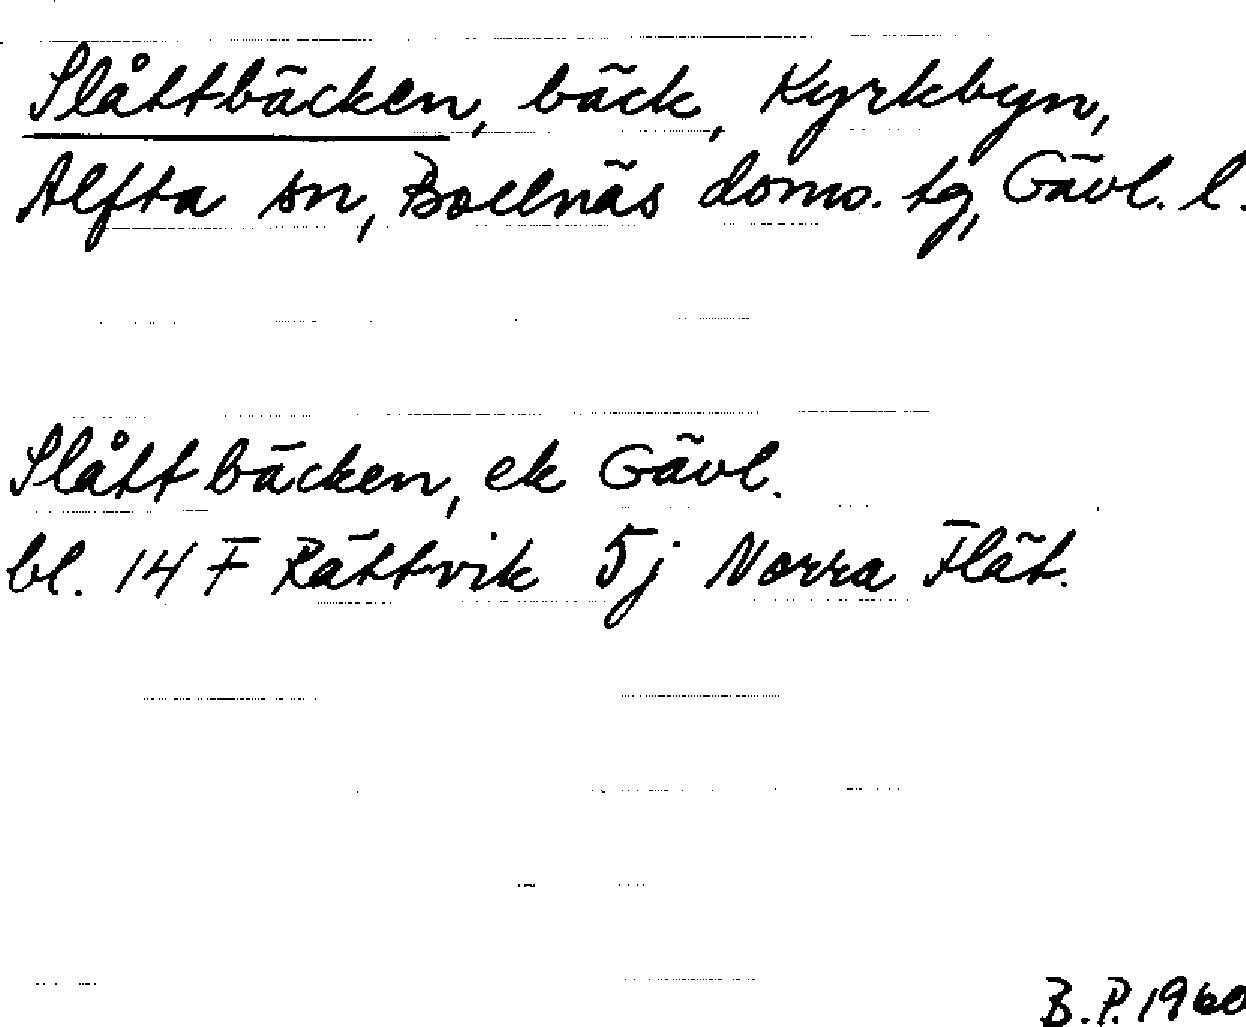 Slåttbäcken, bäck, Kyrkbyn,
Alfta sn, Bollnäs doms. tg, Gävl. l.
Slåttbäcken, ek Gävl.
bl. 14 F Rättvik 5j Norra Flät.
B.P. 1960